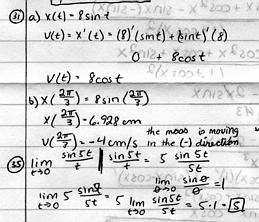 31 a) x(t) = 8 sin t
v(t) = x'(t) = (8)'(sin t) + (sin t)'(8)
0 + 8 cos t
v(t) = 8 cos t
b) x(2π/3) = 8 sin (2π/3)
x(2π/3) = 6.928 cm
v(2π/3) = -4 cm/s the mass is moving in the (-) direction
35 lim t→0 sin 5t / t | sin 5t / t = 5 sin 5t / 5t
lim θ→0 sin θ / θ = 1
lim t→0 5 sin 5t / 5t = 5 lim t→0 sin 5t / 5t = 5·1 = 5